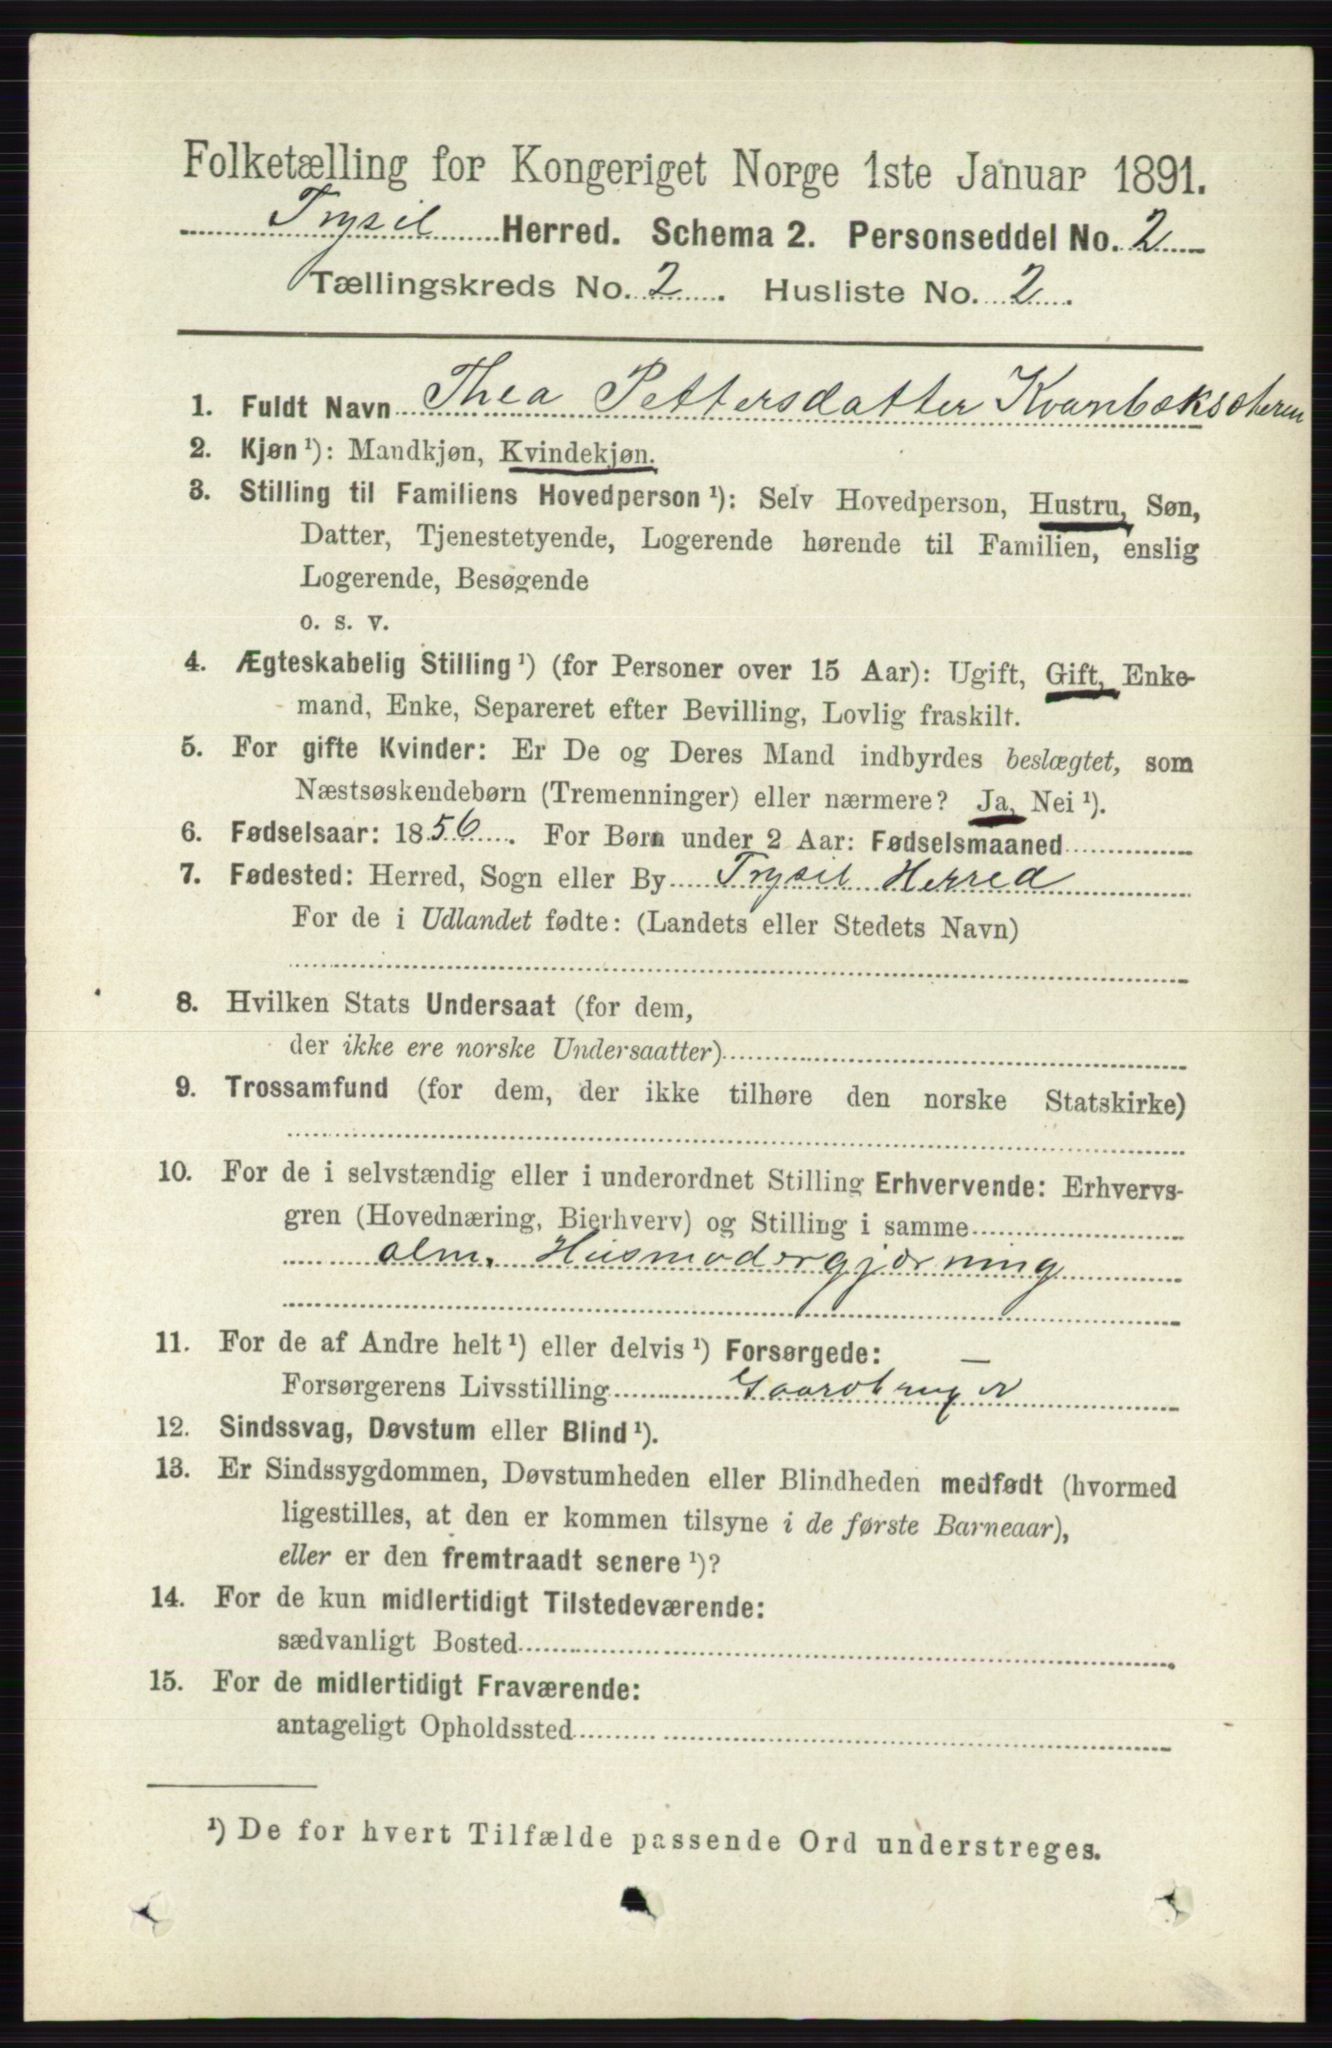 Folketælling for Kongeriget Norge 1ste Januar 1891.
Trysil Herred. Schema 2. Personseddel No. 2
Tællingskreds No. 2. Husliste No. 2.
1. Fuldt Navn Thea Pettersdatter
2. Kjøn ¹): Mandkjøn, Kvindekjøn.
3. Stilling til Familiens Hovedperson ¹): Selv Hovedperson, Hustru, Søn,
Datter, Tjenestetyende, Logerende hørende til Familien, enslig
Logerende, Besøgende
o. s. v.
4. Ægteskabelig Stilling ¹) (for Personer over 15 Aar): Ugift, Gift, Enke-
mand, Enke, Separeret efter Bevilling, Lovlig fraskilt.
5. For gifte Kvinder: Er De og Deres Mand indbyrdes beslægtet, som
Næstsøskendebørn (Tremenninger) eller nærmere? Ja, Nei ¹).
6. Fødselsaar: 1856. For Børn under 2 Aar: Fødselsmaaned
7. Fødested: Herred, Sogn eller By Trysil Herred
For de i Udlandet fødte: (Landets eller Stedets Navn)
8. Hvilken Stats Undersaat (for dem,
der ikke ere norske Undersaatter)
9. Trossamfund (for dem, der ikke tilhøre den norske Statskirke)
10. For de i selvstændig eller i underordnet Stilling Erhvervende: Erhvervs-
gren (Hovednæring, Bierhverv) og Stilling i samme
alm. Husmodergjærning
11. For de af Andre helt ¹) eller delvis ¹) Forsørgede:
Forsørgerens Livsstilling Gaardbruger
12. Sindssvag, Døvstum eller Blind ¹).
13. Er Sindssygdommen, Døvstumheden eller Blindheden medfødt (hvormed
ligestilles, at den er kommen tilsyne i de første Barneaar),
eller er den fremtraadt senere ¹)?
14. For de kun midlertidigt Tilstedeværende:
sædvanligt Bosted
15. For de midlertidigt Fraværende:
antageligt Opholdssted
¹) De for hvert Tilfælde passende Ord understreges.